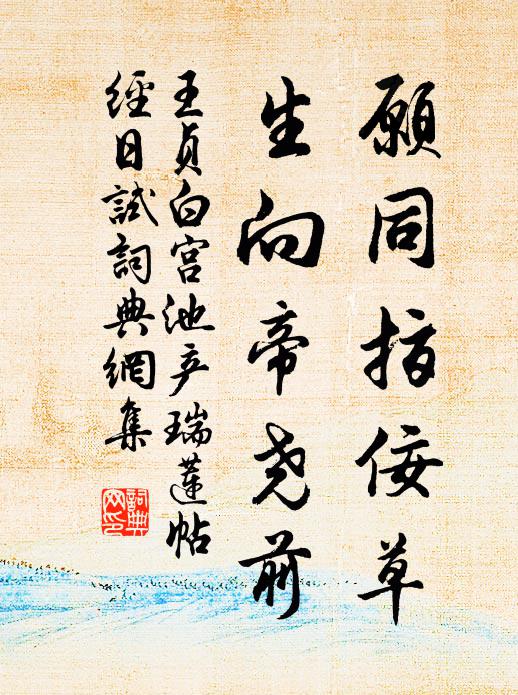 願同指佞草
生向帝尧前
王貞白宫池产瑞蓮帖
經日試詞典網集
詞典網印